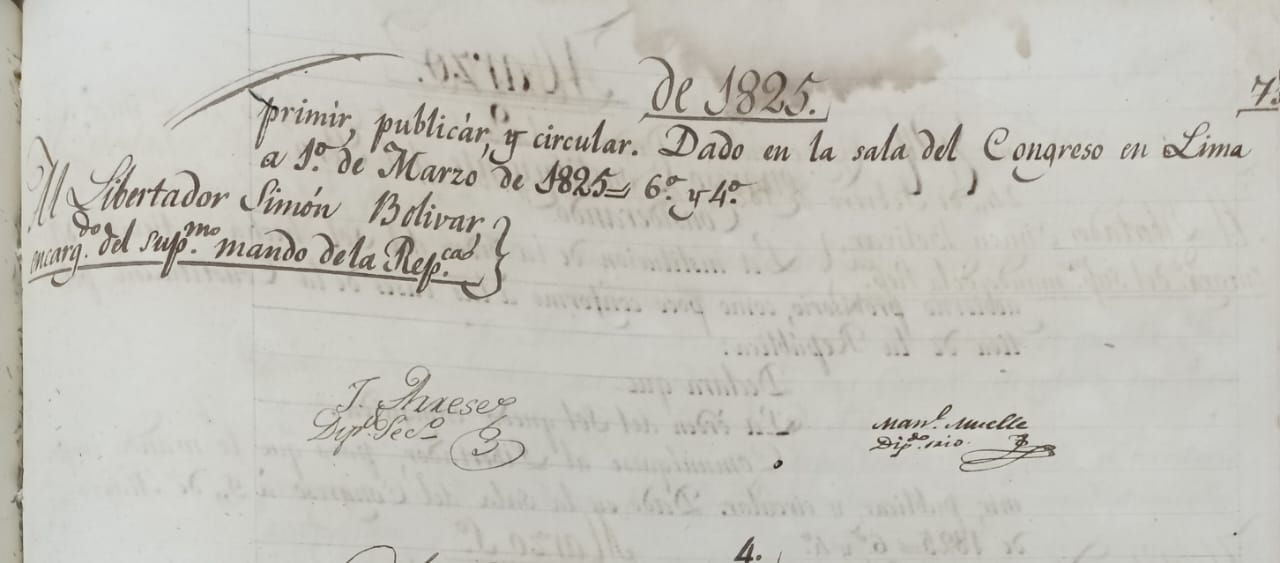 de 1825.
primir, publicár, y circular. Dado en la sala del Congreso en Lima
a 1º. de Marzo de 1825= 6º. y 4º.
Al Libertador Simón Bolivar,
encargdo. del supmo. mando de la Repca.
Dipº. Secº
Manl. Muelle
Dipdo. srio.
4.